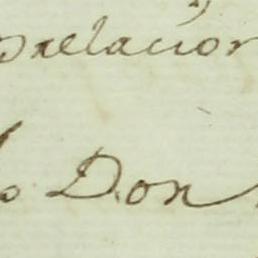 relacion
Don